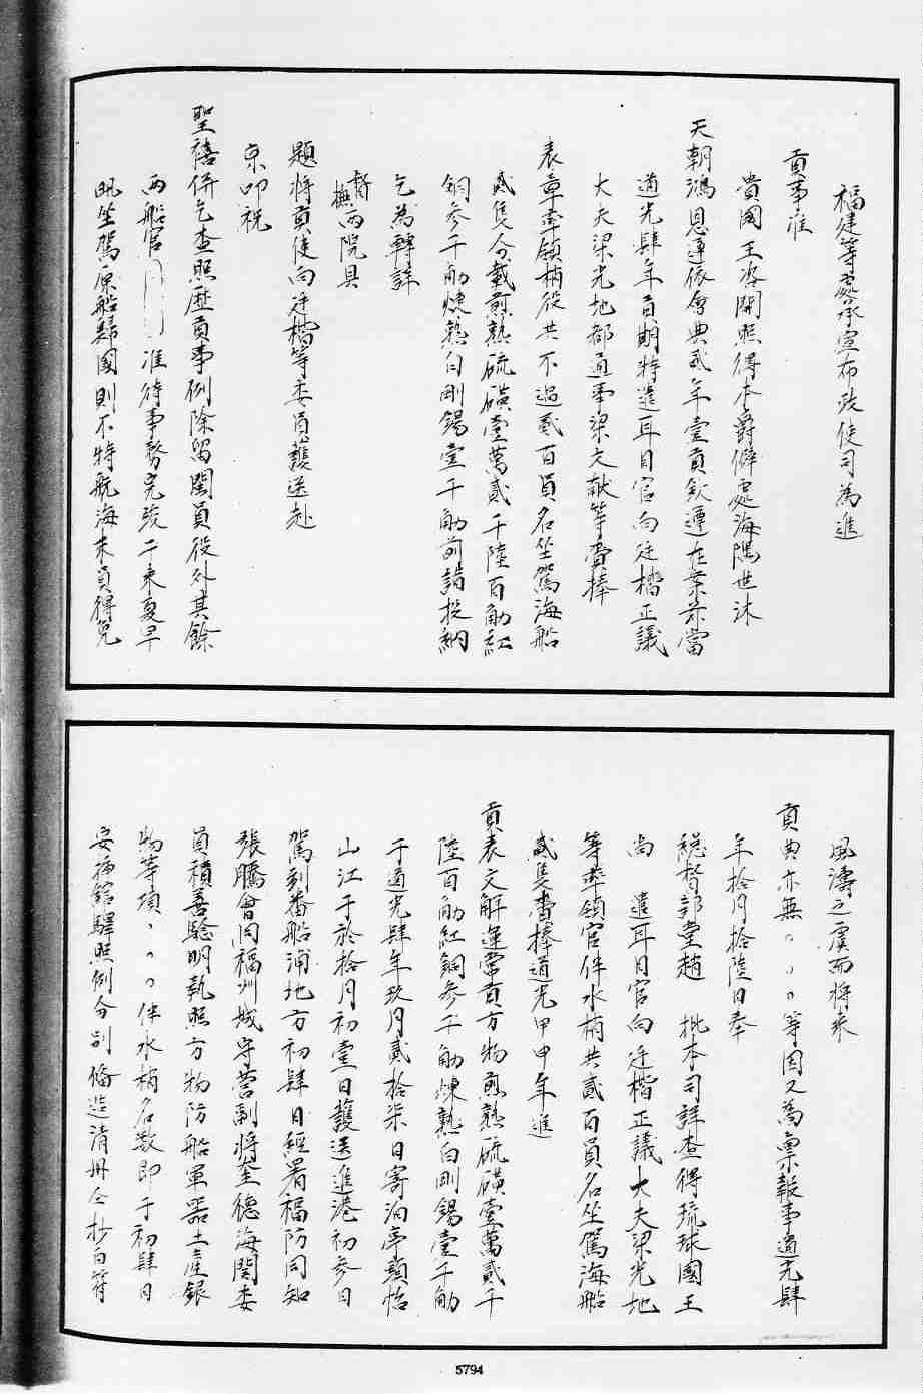 福建等處承宣布政使司為進
貢事准
貴國王咨開照得本爵僻處海隅世沐
天朝鴻恩遵依會典貳年壹貢欽遵在案茲當
道光肆年貢期特遣耳目官向廷楷正議
大夫梁光地都通事梁文献等賫捧
表章率領梢役共不過貳百員名坐駕海船
貳隻分載煎熟硫磺壹萬貳千陸百觔紅
銅參千觔煉熟白剛錫壹千觔前詣投納
乞為轉詳
督撫兩院具
題將貢使向廷楷等委員護送赴
京叩祝
聖禧併乞查照歷貢事例除留閩員役外其餘
兩船官准待事務完竣于来夏早
汛坐駕原船歸國則不特航海末員得免
風濤之虞而將来
貢典亦無等因又為禀報事道光肆
年拾月拾陸日奉
總督部堂趙 批本司詳查得琉球國王
尚 遣耳目官向廷楷正議大夫梁光地
等率領官伴水梢共貳百員名坐駕海船
貳隻賫捧道光甲申年進
貢表文解運常貢方物煎熟硫磺壹萬貳千
陸百觔紅銅參千觔煉熟白剛錫壹千觔
于道光肆年玖月貳拾柒日寄泊亭頭怡
山江于於拾月初壹日護送進港初參日
駕到番船浦地方初肆日經署福防同知
張騰會同福州城守營副將奎德海関委
員積善驗明執照方物防船軍器土產銀
物等項伴水梢名數即于初肆日
安插館驛照例分別俻造清冊仝抄白符
5794